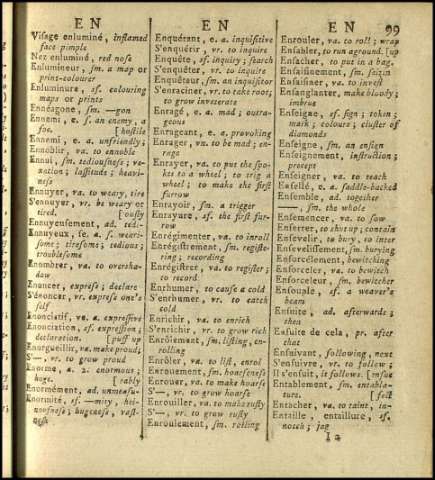 EN EN EN 99
Visage enluminé, inflamed
face pimple
Nez enluminé, red nose
Enlumineur, sm. a map or
print-colourer
Enluminure, sf. colouring
maps or prints
Ennéagone, sm. —gon
Ennemi, e. s. an enemy, a
foe. [hostile
Ennemi, e. a. unfriendly;
Ennoblir, va. to ennoble
Ennui, sm. tediousness; vexation; lassitude; heaviness
Ennuyer, va. to weary, tire
S'ennuyer, vr. be weary or
tired. [ously
Ennuyeusement, ad. tedi-
Ennuyeux, se. a. s. wearisome; tiresome; tedious;
troublesome
Enombrer, va. to overshadow
Enoncer, express; declare
S'énoncer, vr. express one's
self
Enonciatif, ve. a. expressive
Enonciation, sf. expression;
declaration. [puff up
Enorgueillir, va. make proud;
S'—, vr. to grow proud
Enorme, a. 2. enormous;
huge. [rably
Enormément, ad. unmeasu-
Enormité, sf. —mity, heinousness; hugeness, vastness
Enquérant, e. a. inquisitive
S'enquérir, vr. to inquire
Enquête, sf. inquiry; search
S'enquêter, vr. to inquire
Enquêteur, sm. an inquisitor
S'enraciner, vr. to take root;
to grow inveterate
Enragé, e. a. mad; outrageous
Enrageant, e. a. provoking
Enrager, vn. to be mad; enrage
Enrayer, va. to put the spokes to a wheel; to trig a
wheel; to make the first
furrow
Enrayoir, sm. a trigger
Enrayure, sf. the first furrow
Enrégimenter, va. to inroll
Enrégistrement, sm. registering; recording
Enrégistrer, va. to register;
to record
Enrhumer, to cause a cold
S'enrhumer, vr. to catch
cold
Enrichir, va. to enrich
S'enrichir, vr. to grow rich
Enrôlement, sm. listing, enrolling
Enrôler, va. to list, enrol
Enrouement, sm. hoarseness
Enrouer, va. to make hoarse
S'—, vr. to grow hoarse
Enrouiller, va. to make rusty
S'—, vr. to grow rusty
Enroulement, sm. rolling
Enrouler, va. to roll; wrap
Ensabler, to run aground. [up
Ensacher, to put in a bag.
Ensaisinement, sm. seizin
Ensaisiner, va. to invest
Ensanglanter, make bloody;
imbrue
Enseigne, sf. sign; token;
mark; colours; cluster of
diamonds
Enseigne, sm. an ensign
Enseignement, instruction;
precept
Enseigner, va. to teach
Ensellé, e. a. saddle-backed
Ensemble, ad. together
—, sm. the whole
Ensemencer, va. to sow
Enserrer, to shut up; contain
Ensevelir, to bury, to inter
Ensevelissement, sm. burying
Ensorcélement, bewitching
Ensorceler, va. to bewitch
Ensorceleur, sm. bewitcher
Ensouple, sf. a weaver's
beam
Ensuite, ad. afterwards;
then
Ensuite de cela, pr. after
that
Ensuivant, following, next
S'ensuivre, vr. to follow;
Il s'ensuit, it follows. [ensue
Entablement, sm. entablature.
Entacher, va. to taint, in-
Entaille, entaillure, sf.
notch; jag
I 2